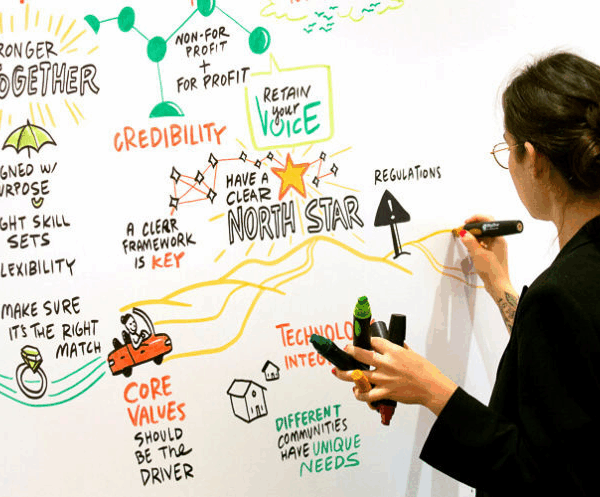 TOGETHER
NON-FOR
PROFIT
+
FOR PROFIT
RETAIN
your
VOICE
CREDIBILITY
HAVE A
CLEAR
NORTH STAR
REGULATIONS
A CLEAR
FRAMEWORK
IS KEY
W/
SETS
MAKE SURE
IT'S THE RIGHT
MATCH
CORE
VALUES
SHOULD
BE THE
DRIVER
DIFFERENT
COMMUNITIES
HAVE UNIQUE
NEEDS